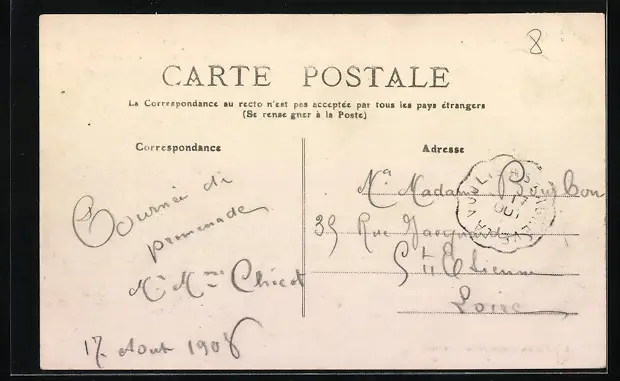 8
CARTE POSTALE
La Correspondance au recto n'est pas acceptée par tous les pays étrangers
(Se rense gner à la Poste)
Correspondance
Adresse
Tournée di
promenade
Mr Mme Chicot
17 Aout 1908
Mr Madame Bourbon
35 Rue Jacquard
St Etienne
Loire
17